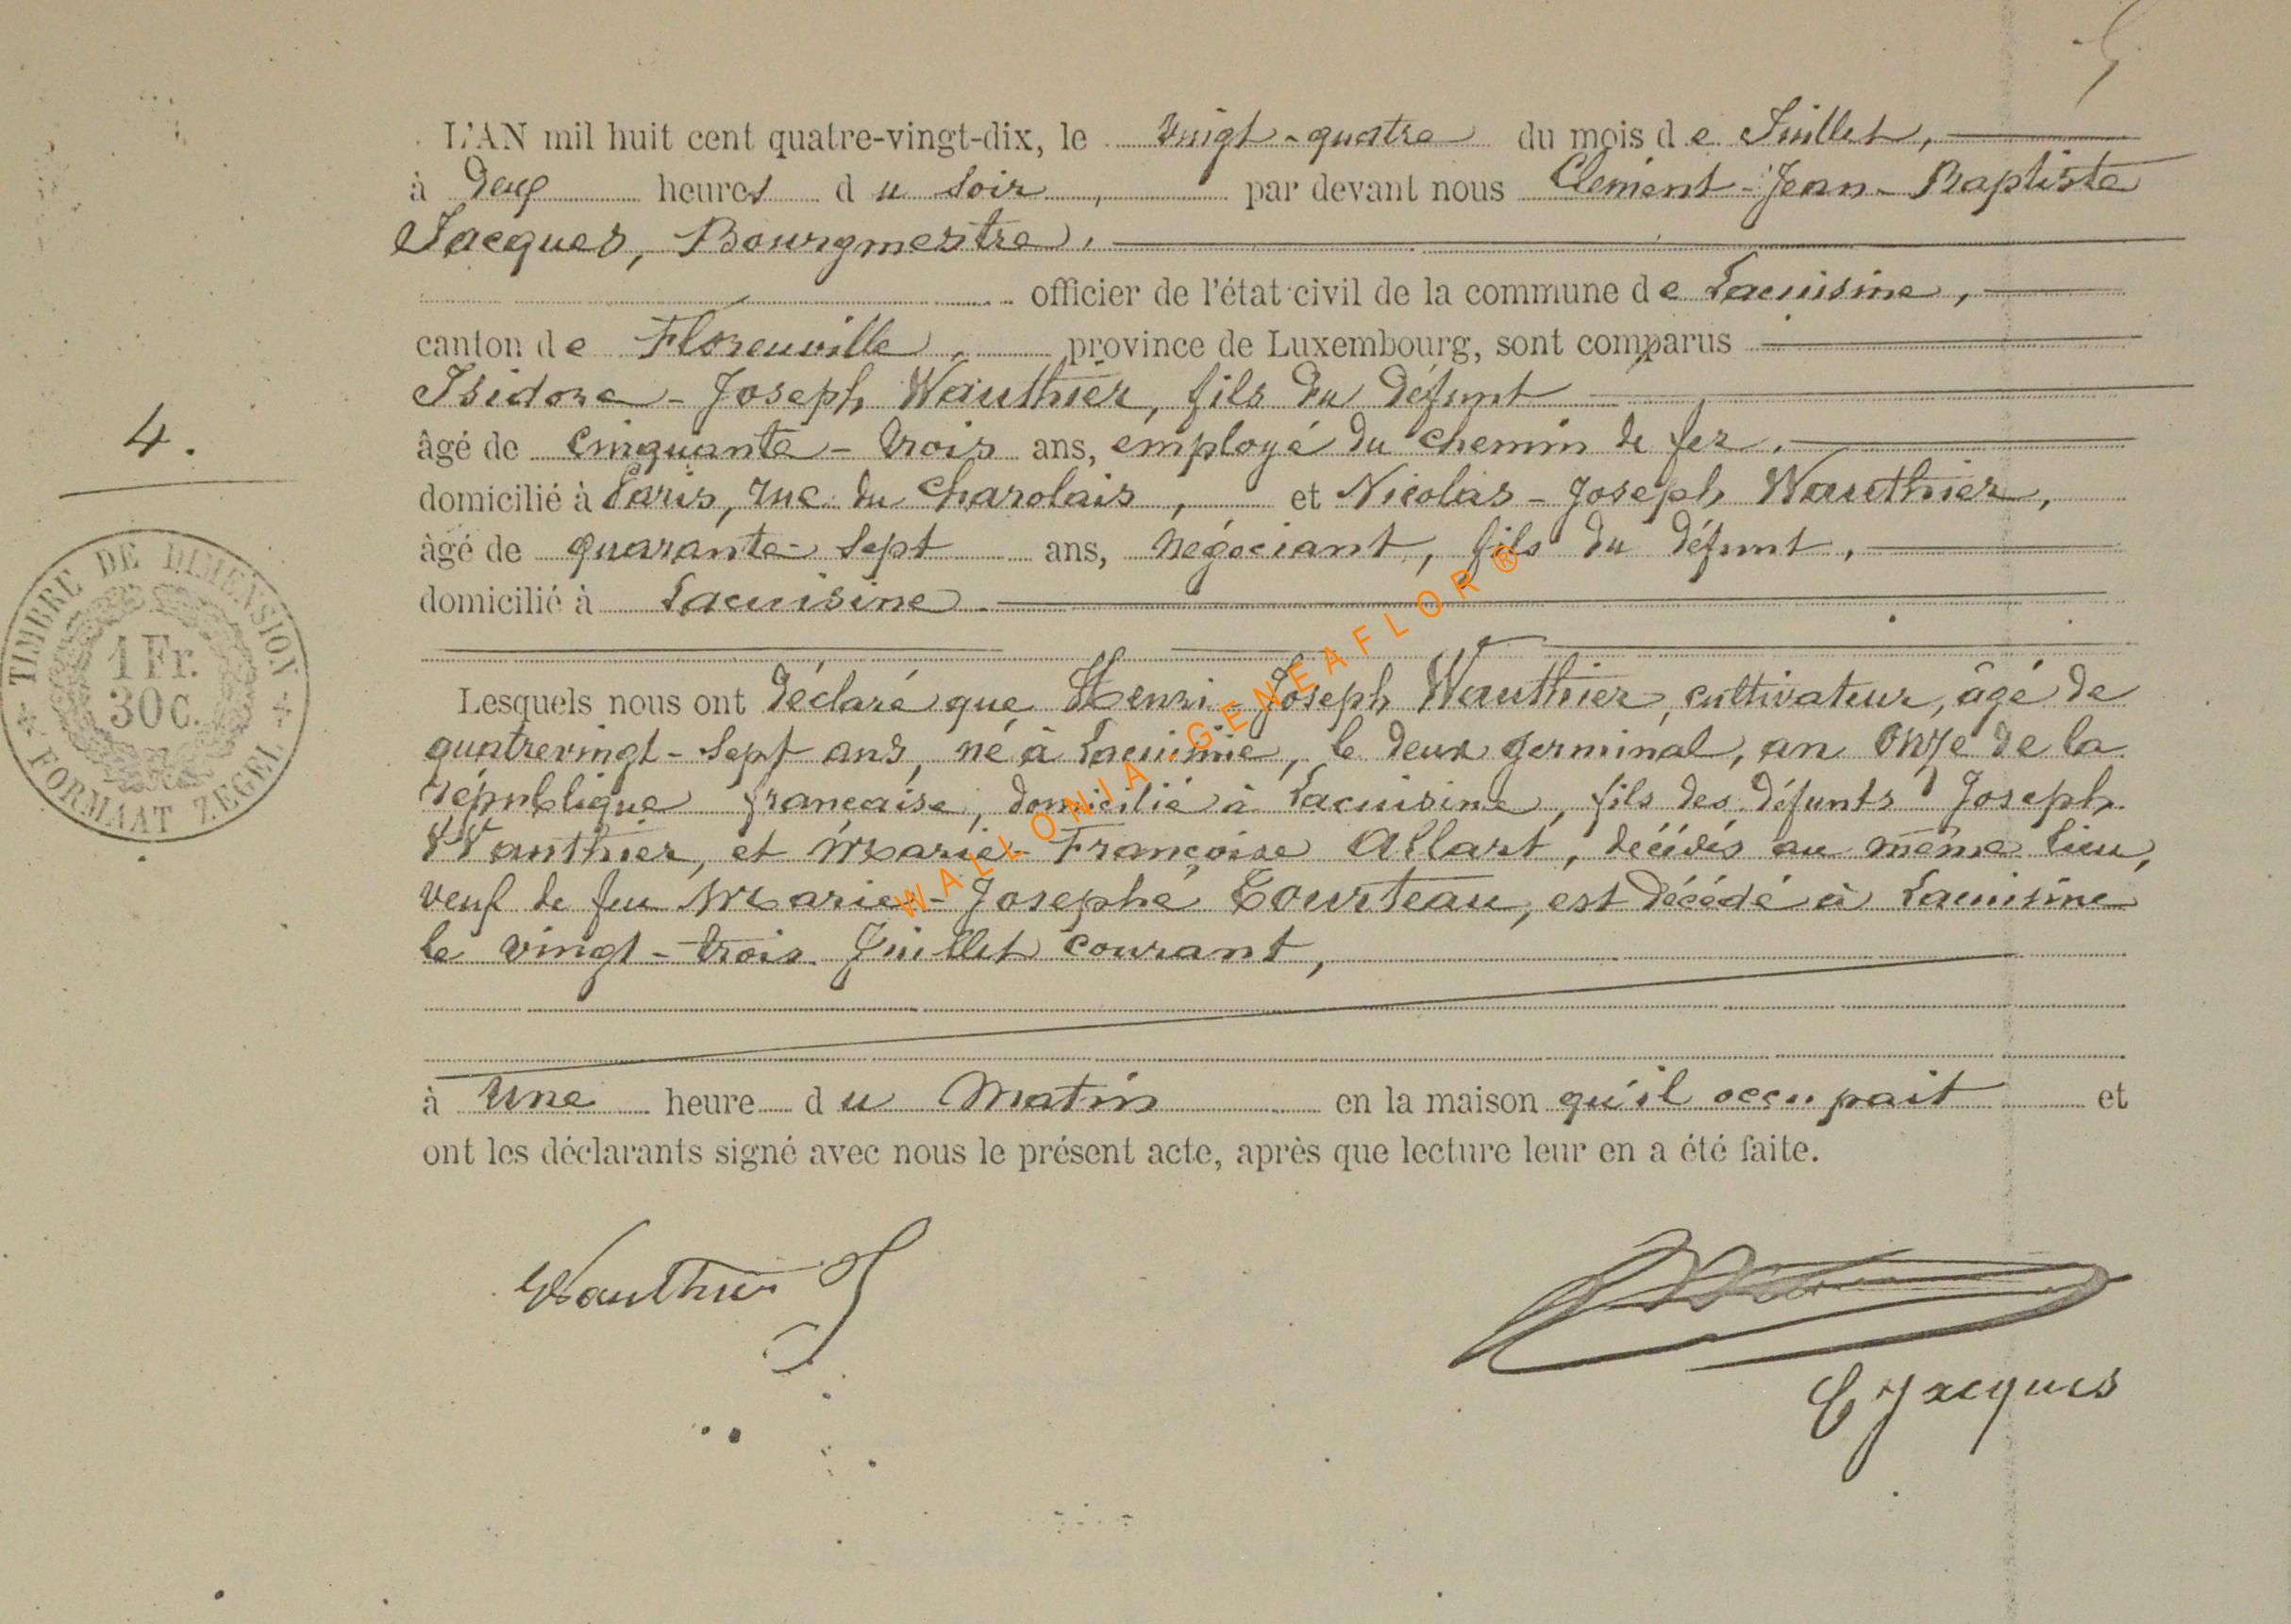 5
L'AN mil huit cent quatre-vingt-dix, le vingt-quatre du mois de Juillet,
à deux heures du soir, par devant nous Clément-Jean-Baptiste
Jacques, Bourgmestre,
officier de l'état civil de la commune de Lacuisine,
canton de Florenville, province de Luxembourg, sont comparus
Isidore-Joseph Wauthier, fils du défunt
âgé de cinquante-trois ans, employé du chemin de fer,
4.
domicilié à Paris, rue du Charolais, et Nicolas-Joseph Wauthier,
âgé de quarante-sept ans, négociant, fils du défunt,
domicilié à Lacuisine
TIMBRE DE DIMENSION
1 Fr.
30 C.
FORMAAT ZEGEL
Lesquels nous ont déclaré que Henri-Joseph Wauthier, cultivateur, âgé de
quatrevingt-sept ans, né à Lacuisine, le deux germinal, an onze de la
république française, domicilié à Lacuisine, fils des défunts Joseph
Wauthier, et Marie-Françoise Allart, décédés au même lieu,
veuf de feu Marie-Josephe Courteau, est décédé à Lacuisine
le vingt-trois Juillet courant,
à une heure du matin en la maison qu'il occupait et
ont les déclarants signé avec nous le présent acte, après que lecture leur en a été faite.
Wauthier J
C Jacques
WALLONIA - GENEAFLOR ®